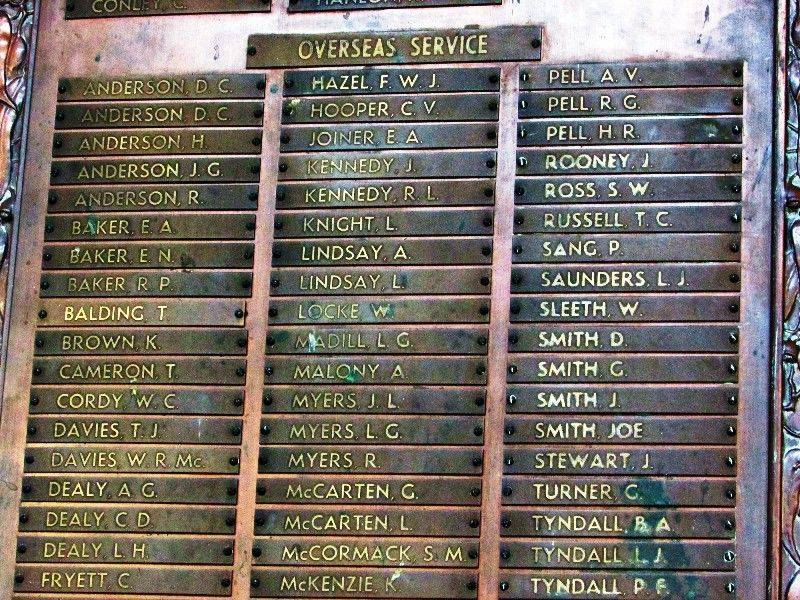 CONLEY, C.
OVERSEAS SERVICE
ANDERSON, D. C.
ANDERSON, D. C.
ANDERSON, H.
ANDERSON, J. G.
ANDERSON, R.
BAKER, E. A.
BAKER, E. N.
BAKER R. P.
BALDING, T.
BROWN, K.
CAMERON, T.
CORDY, W. C.
DAVIES, T. J.
DAVIES W. R. Mc.
DEALY, A. G.
DEALY, C. D.
DEALY, L. H.
FRYETT, C.
HAZEL, F. W. J.
HOOPER, C. V.
JOINER, E. A.
KENNEDY, J.
KENNEDY, R. L.
KNIGHT, L.
LINDSAY, A.
LINDSAY, L.
LOCKE, W.
MADILL, L. G.
MALONY, A.
MYERS, J. L.
MYERS, L. G.
MYERS, R.
McCARTEN, G.
McCARTEN, L.
McCORMACK, S. M.
McKENZIE, K.
PELL, A. V.
PELL, R. G.
PELL, H. R.
ROONEY, J.
ROSS, S. W.
RUSSELL, T. C.
SANG, P.
SAUNDERS, L. J.
SLEETH, W.
SMITH, D.
SMITH, G.
SMITH, J.
SMITH, JOE
STEWART, J.
TURNER, G.
TYNDALL, B. A.
TYNDALL, L. J.
TYNDALL, P. F.